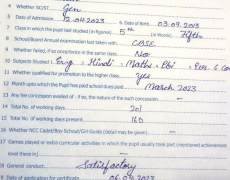 4 Whether SC/ST Gen
5 Date of Admission 12.04.2023 6. Date of Birth 03.09.2013
7 Class in which the pupil last studied (in figures) 5th (in Words) Fifth
8 School/Board Annual examination last taken with CBSE
9 Whether failed, if so once/twice in the same class No
10 Subjects Studied 1. Eng Hindi Maths
11 Whether qualified for promotion to the higher class yes
12 Month upto which the Pupil has paid school dues paid March 2023
13 Any fee concession availed of : if so, the nature of the such concession
14 Total No. of working days 201
15 Total No. of working days present 160
16 Whether NCC Cadet/Boy School/Girl Guide (detail may be given)
17 Games played or extra curricular activities in which the pupil usually took part (mentioned achievement
level there in)
18 General conduct Satisfactory
Date of application for certificate 06.04.2023